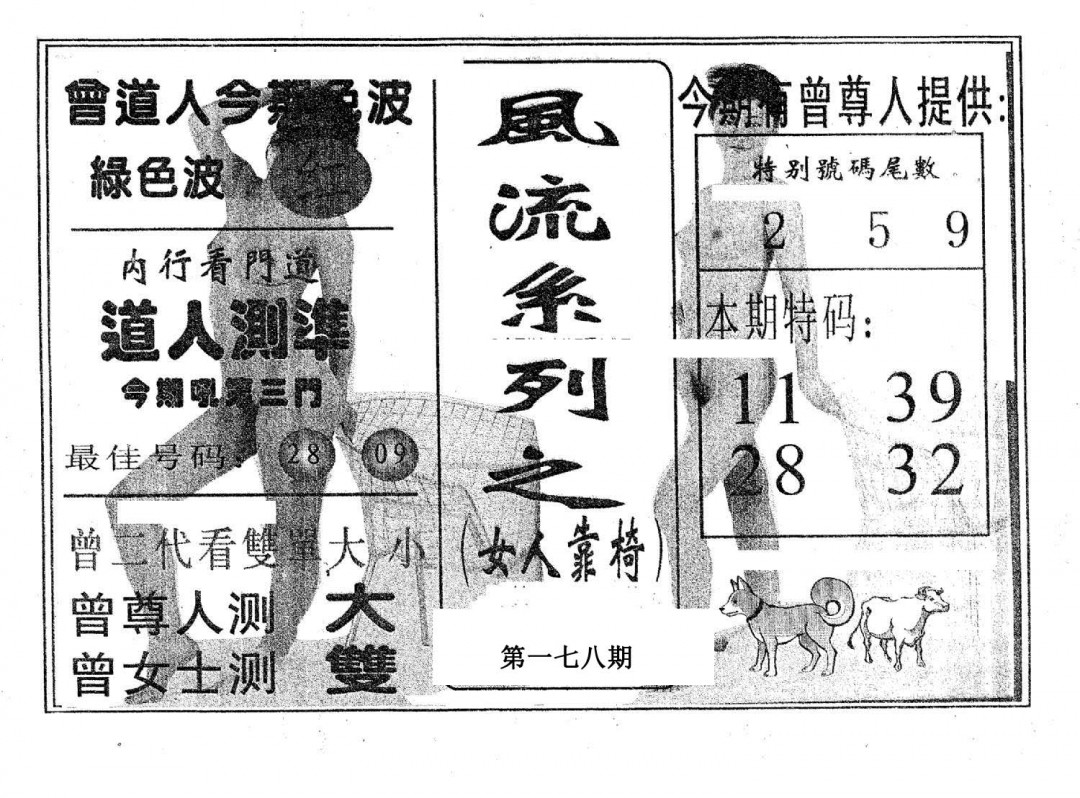 曾道人今期色波
綠色波 紅
内行看門道
道人測準
今期吼實三門
最佳号码: 28 09
曾二代看雙單大小
曾尊人测 大
曾女士测 雙
風流系列之
(女人靠椅)
第一七八期
今期有曾尊人提供:
特别號碼尾數
2 5 9
本期特码:
11 39
28 32